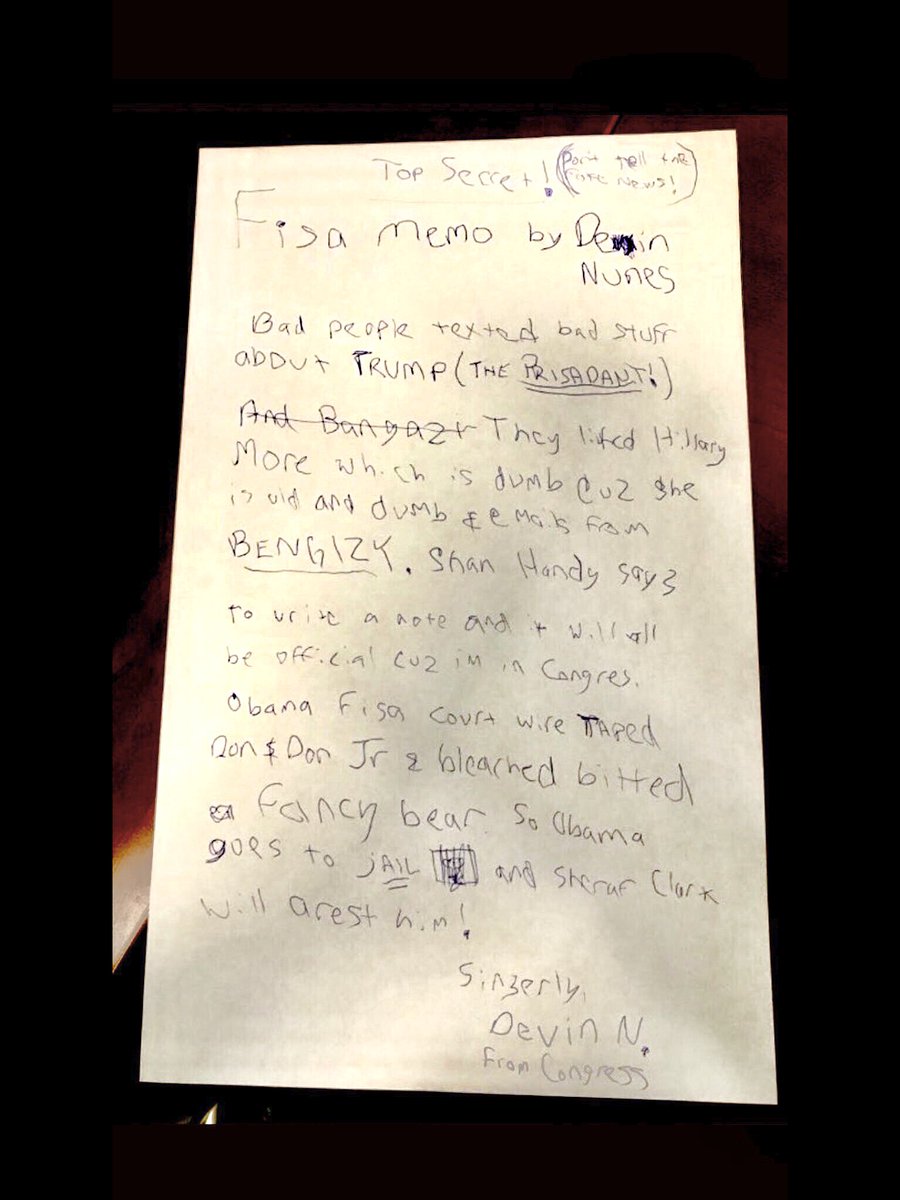 Top Secret! (Don't tell the
Fake News!)
Fisa memo by Devin
Nunes
Bad people texted bad stuff
about TRUMP (THE PRISADANT!)
And Bangazi They liked Hillary
More which is dumb cuz she
is old and dumb & emails from
BENGIZY. Shan Handy says
to write a note and it will all
be official cuz im in Congres.
Obama Fisa court wire TAPED
Don & Don Jr & bleached bitted
Fancy bear. So Obama
goes to JAIL and Sheraf Clark
will arest him!
Sinzerly,
Devin N.
From Congress